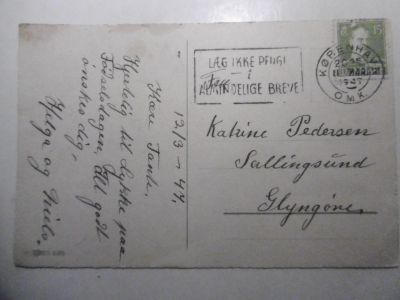 12/3 - 47.
Kære Tante.
Hjertelig til Lykke paa
Fødselsdagen, Alt godt
ønskes dig,
Helga og Niels.
LÆG IKKE PENGE
i
ALMINDELIGE BREVE
KØBENHAVN
OMK.
15
Katrine Pedersen
Sallingsund
Glyngøre.